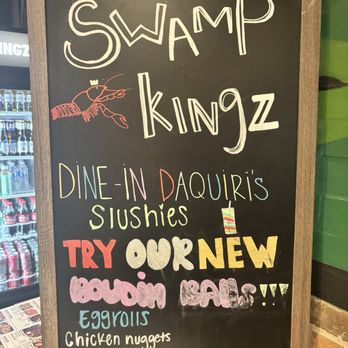 INGZ
SWAMP
KINGZ
DINE-IN DAQUIRI'S
Slushies
TRY OUR NEW
BOUDIN BALLS!!!
EGGROLLS
Chicken nuggets